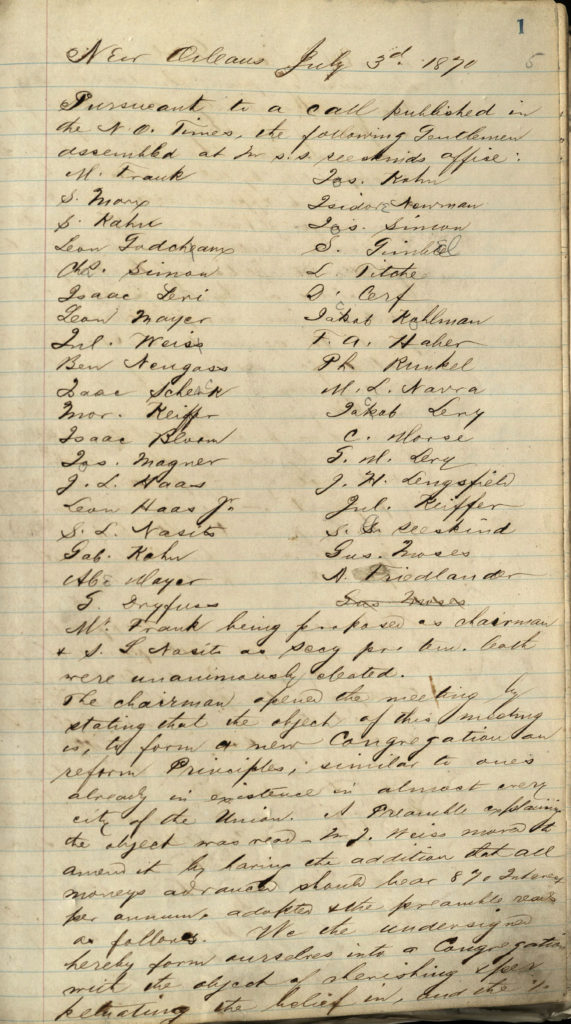 1
New Orleans July 3d. 1870 5
Pursueant to a call published in
the N.O. Times, the following Gentlemen
assembled at Mr S.S. Seeskinds office:
M. Frank Jos. Kohn
S. Marx Isidore Newman
S. Kahn Jos. Simon
Leon Godcheaux S. Gimbel
Chs. Simon L. Titche
Isaac Levi D. Cerf
Leon Mayer Jakob Kohlman
Jul. Weiss F. A. Haber
Ben Neugass Ph Runkel
Isaac Scherck M. L. Navra
Mor. Keiffer Jakob Levy
Isaac Bloom C. Morse
Jos. Magner G. M. Levy
J. L. Haas J. H. Lengsfield
Leon Haas Jr. Jul. Keiffer
S. L. Nasits S. S. Seeskind
Gab. Kahn Gus. Moses
Abe Mayer A. Friedlander
G. Dryfuss Gus Moses
Mr. Frank being proposed as chairman
& S. L Nasits as Secy pro. tem. both
were unanimously elected.
The chairman opened the meeting by
stating that the object of this meeting
is, to form a new Congregation on
reform Principles, similar to ones
already in existence in almost every
city of the Union. A Preamble explaining
the object was read - Mr J. Weiss moved to
amend it by having the addition that all
moneys advanced should bear 8% Interest
per annum, adopted & the preamble reads
as follows. We the undersigned
hereby form ourselves into a Congregation
with the object of cherishing & per
petuating the belief in, and the